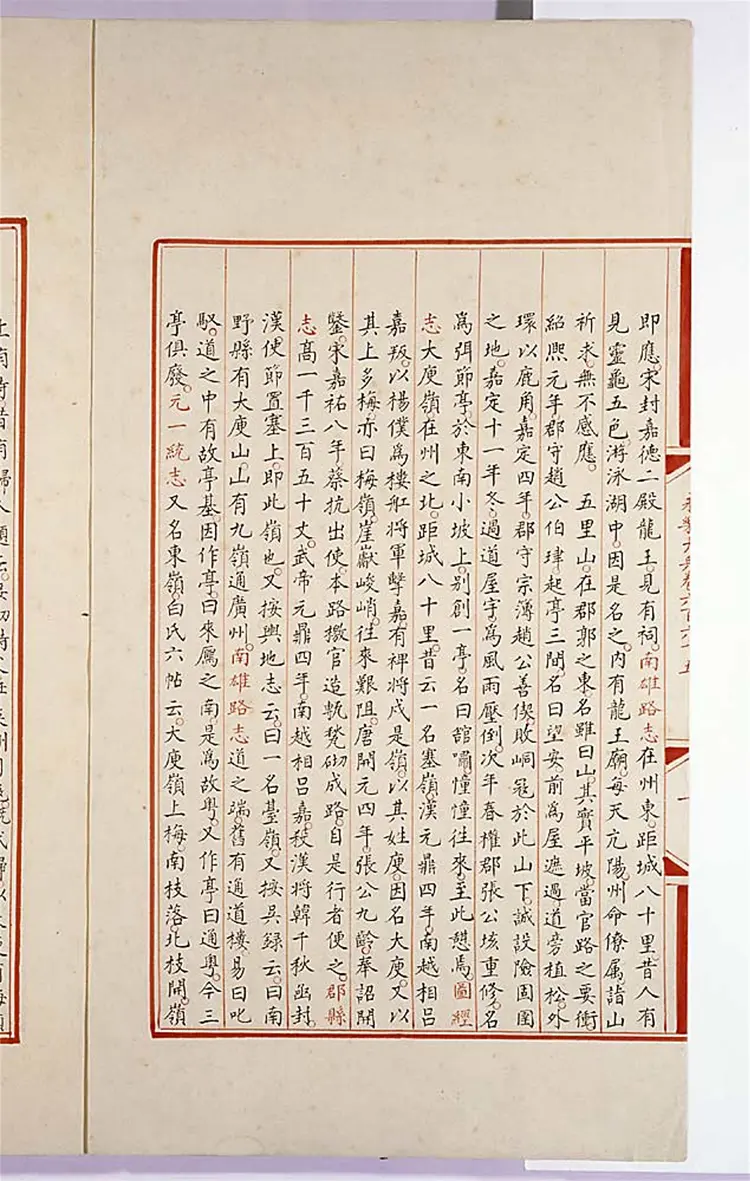 永樂大典卷六百六十五
一
即應。宋封嘉德二殿龍王。見有祠。南雄路志在州東。距城八十里。昔人有
見靈龜五色。游泳湖中。因是名之。内有龍王廟。每天亢陽。州命僚属詣山
祈求。無不感應。　五里山。在郡郭之東。名雖曰山。其實平坡。當官路之要衝。
紹熈元年。郡守趙公伯瑋。起亭三間。名曰望安。前爲屋遮過道。旁植松。外
環以鹿角。嘉定四年。郡守宗簿趙公善偰。敗峒冦於此山下。誠設險固圉
之地。嘉定十一年冬。過道屋宇。爲風雨壓倒。次年春。權郡張公垓重修。名
爲弭節亭。於東南小坡上。别創一亭。名曰舘嘯。憧憧往來。至此憇焉。圖經
志大庾嶺在州之北。距城八十里。昔云一名塞嶺。漢元鼎四年。南越相吕
嘉叛。以楊僕爲樓舡將軍擊嘉。有裨將戍是嶺。以其姓庾。因名大庾。又以
其上多梅。亦曰梅嶺。崖巚峻峭。徃來艱阻。唐開元四年。張公九齡。奉詔開
鑿。宋嘉祐八年。蔡抗出使。本路檄官造甎甃砌成路。自是行者便之。郡縣
志高一千三百五十丈。武帝元鼎四年。南越相吕嘉。殺漢將韓千秋。函封
漢使節置塞上。即此嶺也。又按輿地志云。曰一名臺嶺。又按吳録云。曰南
野縣有大庾山。山有九嶺通廣州。南雄路志道之端。舊有通道樓。易曰叱
馭。道之中有故亭基。因作亭。曰來鴈之南。是爲故粤。又作亭曰通粤。今三
亭俱廢。元一統志又名東嶺。白氏六帖云。大庾嶺上梅。南枝落。北枝開。嶺